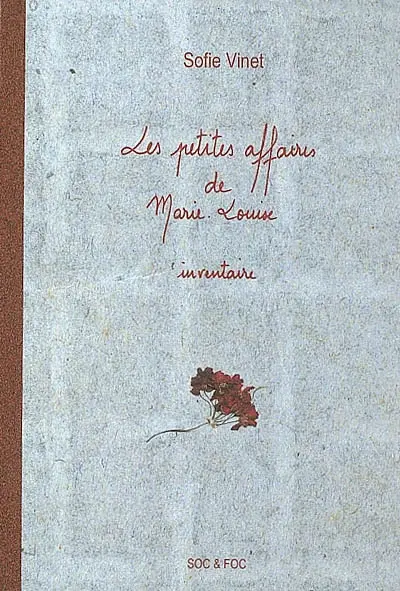 Sofie Vinet
Les petites affaires
de
Marie-Louise
inventaire
SOC & FOC